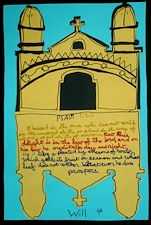 PSALM
Blessed is the man who does not walk
in the counsel of the wicked or stand in the way of
delight is in the law of the Lord and on
his law he meditates day and night
He is like a planted by streams of water,
which yields its fruit in season and whose
leaf does not wither. Whatever he does
prospers
Will